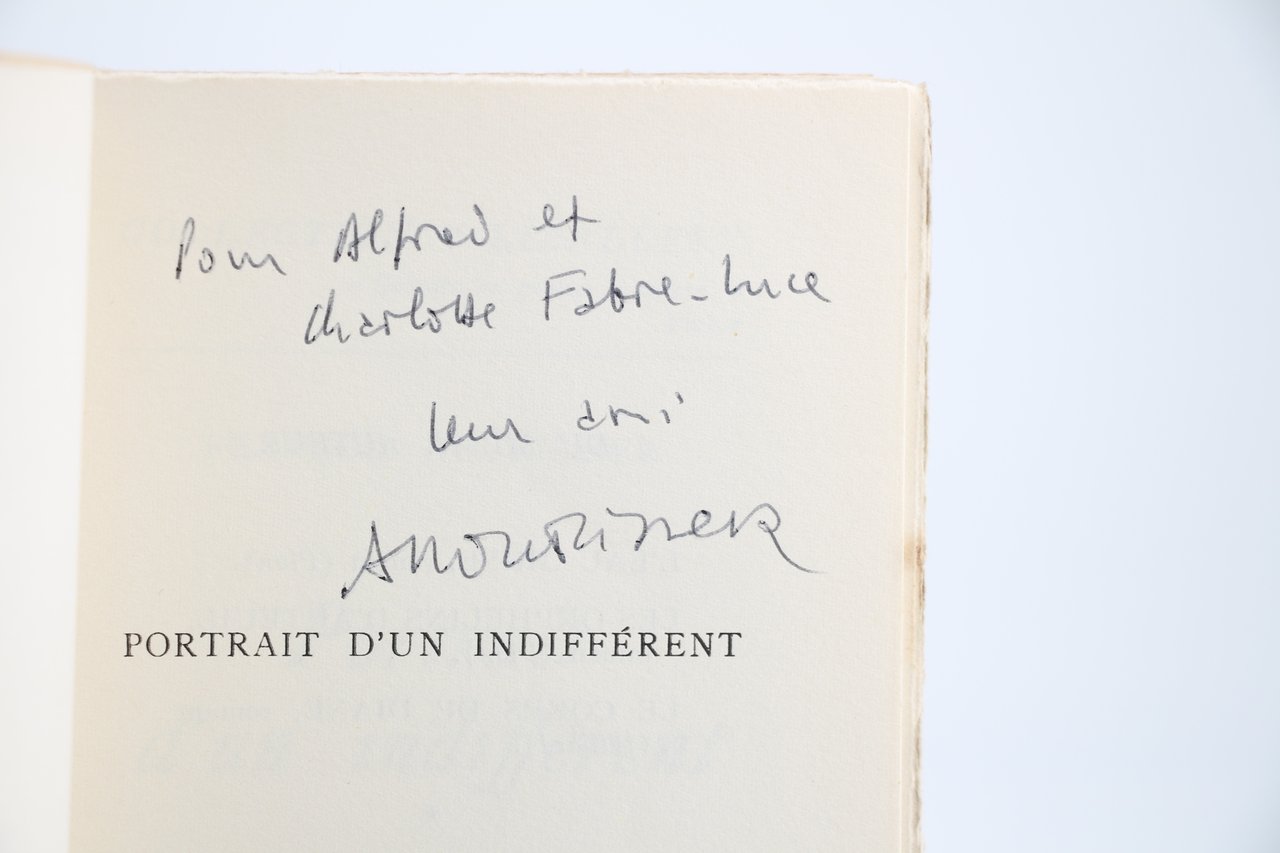 Pour Alfred et
Charlotte Fabre-Luce
leur ami
PORTRAIT D'UN INDIFFÉRENT